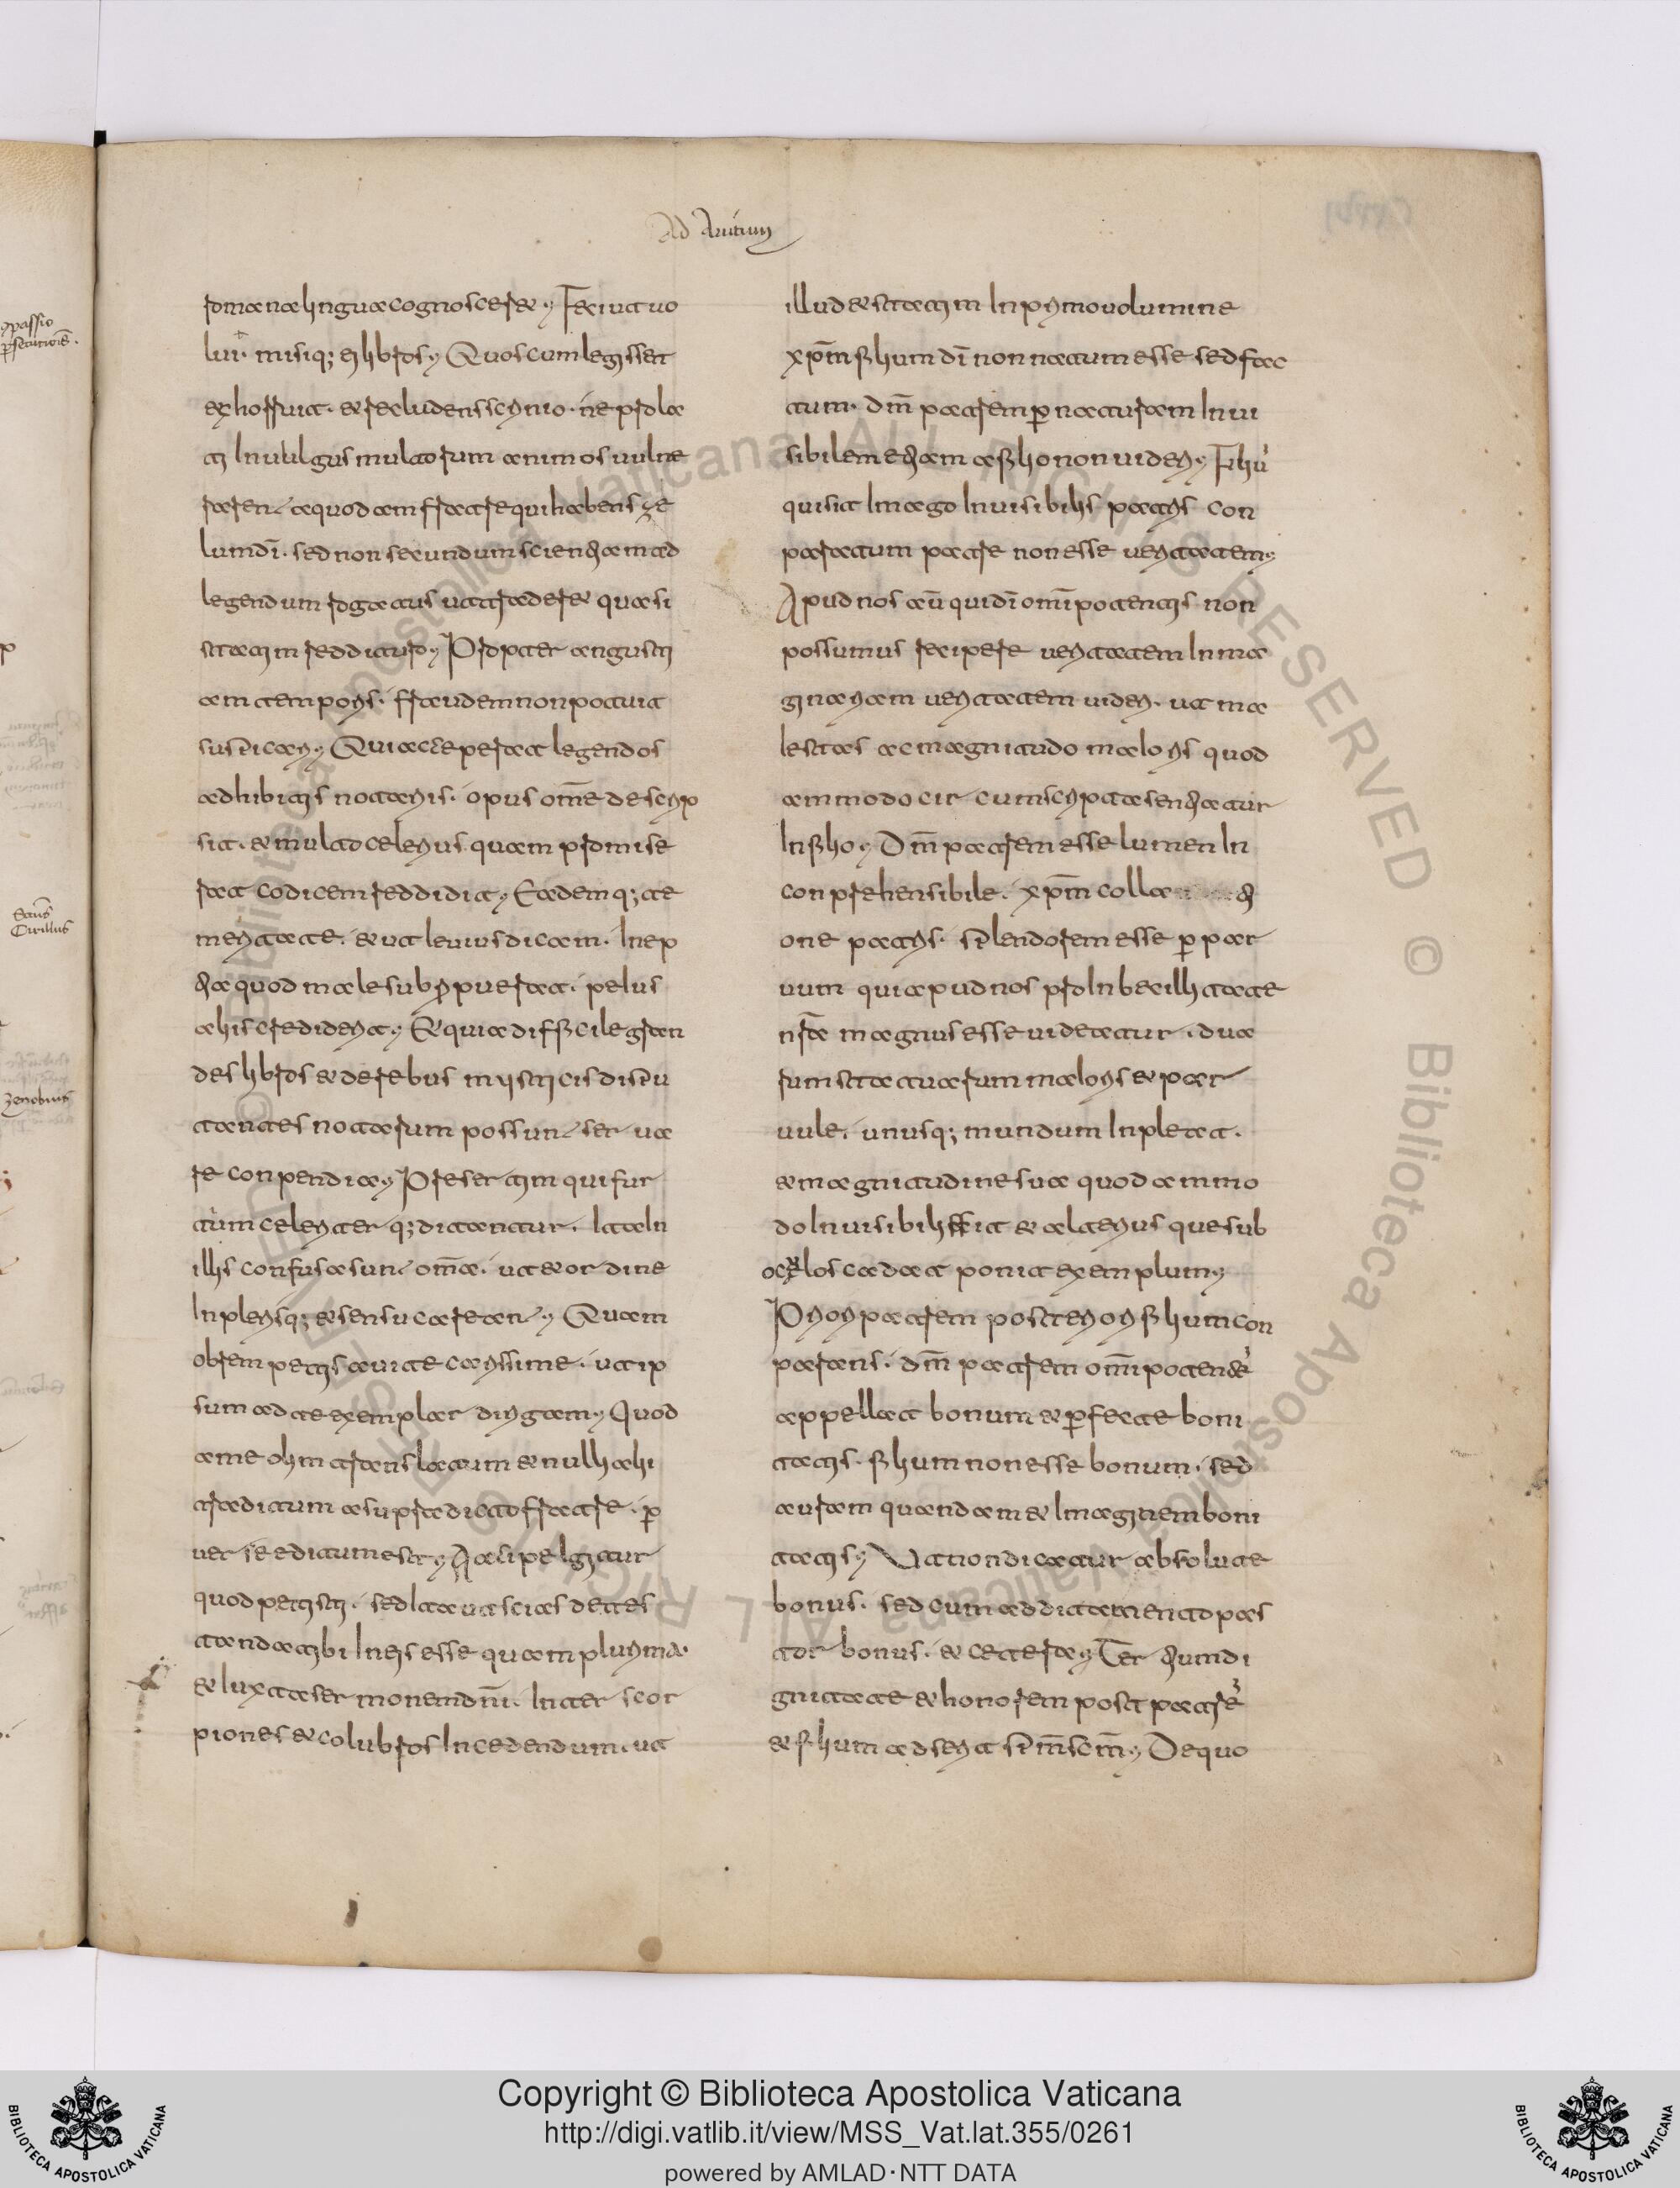 Ad Auitum
romanae linguae cognoscere; Feci ut uo
lui. misiq; ei libros; Quos cum legisset
exhorruit. et recludens scrinio. ne prola
ti In uulgus multorum animos uulne
rarent a quodam fratre qui habens ze
lum dī. sed non secundum scientiam ad
legendum rogatus ut traderet quasi
statim reddituro; Propter angusti
am temporis. fraudem non potuit
suspicari; Qui acceperat legendos
adhibitis notariis. opus om̄e descrip
sit. et multo celerius quam promise
rat codicem reddidit; Eademq; te
meritate. et ut leuius dicam. Inep
tia quod male subripuerat. peius
aliis crediderit; Et quia difficile gran
des libros et de rebus mysticis dispu
tantes notarum possunt ser ua
re conpendia; Presertim qui fur
tum celeriter q; dictantur. Ita In
illis confusa sunt om̄a. ut et or dine
In plerisq; et sensu careant; Quam
obrem petis auite carissime. ut ip
sum ad te exemplar dirigam; Quod
a me olim translatum et nulli alii
traditum a supradicto fratre. p̄
uerse editum est; Accipe Igitur
quod petisti. sed Ita ut scias detes
tanda tibi In eis esse quam plurima.
et Iuxta sermonem dn̄i. Inter scor
piones et colubros Incedendum. ut
illud et statim In primo uolumine
xp̄m filium dī non natum esse sed fac
tum. dm̄ patrem p̄ naturam Inui
sibilem etiam a filio non uideri; Filiū
qui sit Imago Inuisibilis patris con
paratum patre non esse ueritatem;
Apud nos aū qui dī om̄ipotentis non
possumus recipere ueritatem Ima
ginariam ueritatem uideri. ut ma
Iestas ac magnitudo maIoris quod
ammodo cir cumscripta sentiatur
In filio; Dm̄ patrem esse lumen In
conprehensibile. xp̄m colla ti
one patris. splendorem esse p̄ par
uum qui apud nos pro Inbecillitate
nr̄a magnus esse uideatur. dua
rum statuarum maIoris et par
uule. unusq; mundum Inpleat.
et magnitudine sua quod ammo
do Inuisibilis sit et alterius que sub
oculos cadat ponit exemplum;
Priori patrem posteriori filium con
parans. dm̄ patrem om̄ipotentē
appellat bonum et p̄fecte boni
tatis. filium non esse bonum. sed
auram quandam et Imaginem boni
tatis; Ut non dicatur absolute
bonus. sed cum additamento pas
tor bonus. et cetera; Tertium di
gnitate et honorem post patrē
et filium adserit sp̄m sc̄m; De quo
Copyright © Biblioteca Apostolica Vaticana
http://digi.vatlib.it/view/MSS_Vat.lat.355/0261
powered by AMLAD·NTT DATA